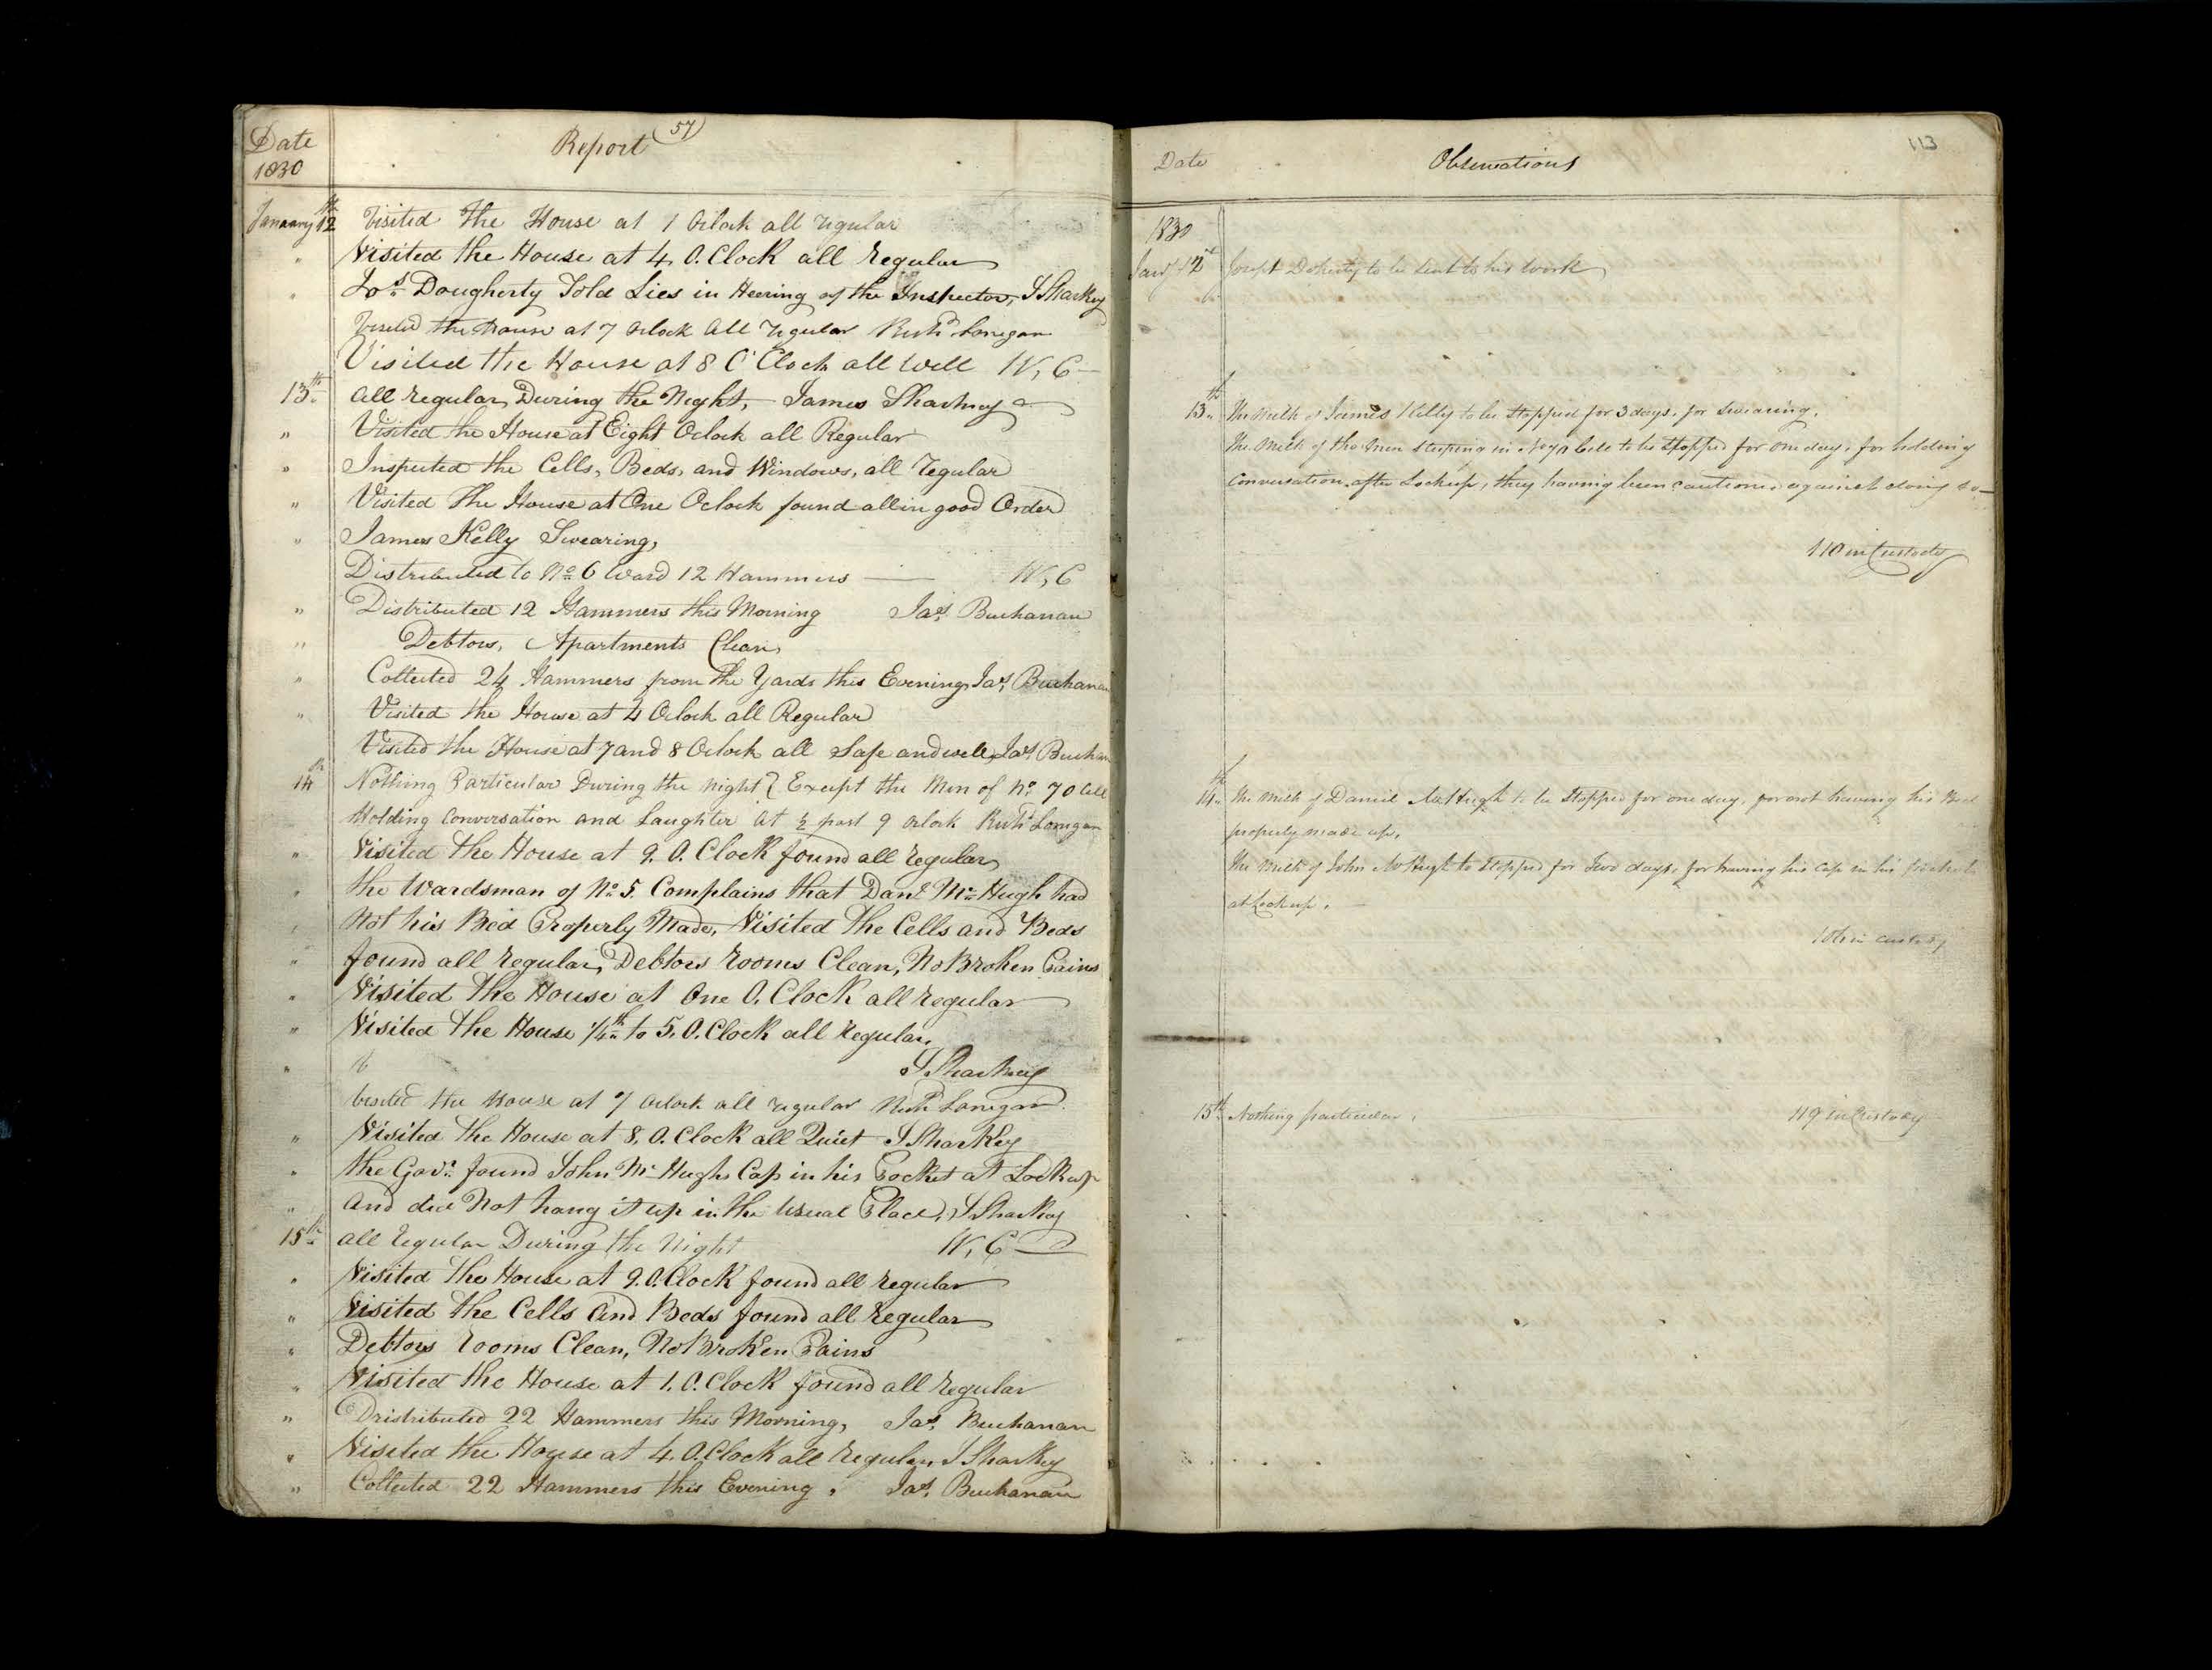 Date
1830
Report 57
January 12th Visited the House at 1 Oclock all regular
" Visited the House at 4. O. Clock all Regular
" Jos. Dougherty Told Lies in Heering of the Inspector, J Sharkey
Visited the House at 7 Oclock all regular Richd Lonigan
Visited the House at 8 O'Clock all well W, C
13th all regular During the Night, James Sharkey
" Visited the House at Eight Oclock all Regular
" Inspected the Cells, Beds, and Windows, all regular
" Visited the House at One Oclock found all in good Order
" James Kelly Swearing,
Distributed to No 6 Ward 12 Hammers W, C
" Distributed 12 Hammers this Morning Jas. Buchanan
" Debtors, Apartments Clean,
" Collected 24 Hammers from the Yards this Evening, Jas. Buchanan
" Visited the House at 4 Oclock all Regular
Visited the House at 7 and 8 Oclock all Safe and well, Jas.
14th Nothing Particular During the night Except the Men of No 70 Cell
Holding Conversation and Laughter at ½ past 9 Oclock Richd Lonigan
" Visited the House at 9. O. Clock found all regular
" the Wardsman of No 5. Complains that Danl. Mc Hugh had
" Not his Bed Properly Made, Visited the Cells and Beds
" found all regular, Debtors rooms Clean, No Broken Pains
" Visited the House at One O. Clock all regular
" Visited the House ¼th to 5. O. Clock all Regular,
" J Sharkey
Visited the House at 7 Oclock all regular Richd Lonigan
" Visited the House at 8. O. Clock all Quiet J Sharkey
" the Govr. found John Mc Hughs Cap in his Pocket at Lockup
" and did Not hang it up in the usual Place, J Sharkey
15th all regular During the Night W, C
" Visited the House at 9. O. Clock found all regular
" Visited the Cells and Beds found all regular
" Debtors rooms Clean, No Broken Pains
" Visited the House at 1. O. Clock found all regular
" Dristributed 22 Hammers this Morning, Jas. Buchanan
" Visited the House at 4. O. Clock all regular, J Sharkey
" Collected 22 Hammers this Evening. Jas. Buchanan
Date
Observations
113
1830
Jany 12th Joseph Doherty to be sent to his work
13th The Milk of James Kelly to be stopped for 3 days, for swearing.
The Milk of the Men sleeping in No 70 Cell to be stopped for one day, for holding
Conversation after Lockup, they having been cautioned against doing so
110 in Custody
14th The Milk of Daniel McHugh to be stopped for one day, for not having his Bed
properly made up,
The Milk of John McHugh to stopped for Two days, for having his Cap in his pocket
at Lockup.
in custody
15th Nothing particular. 119 in Custody